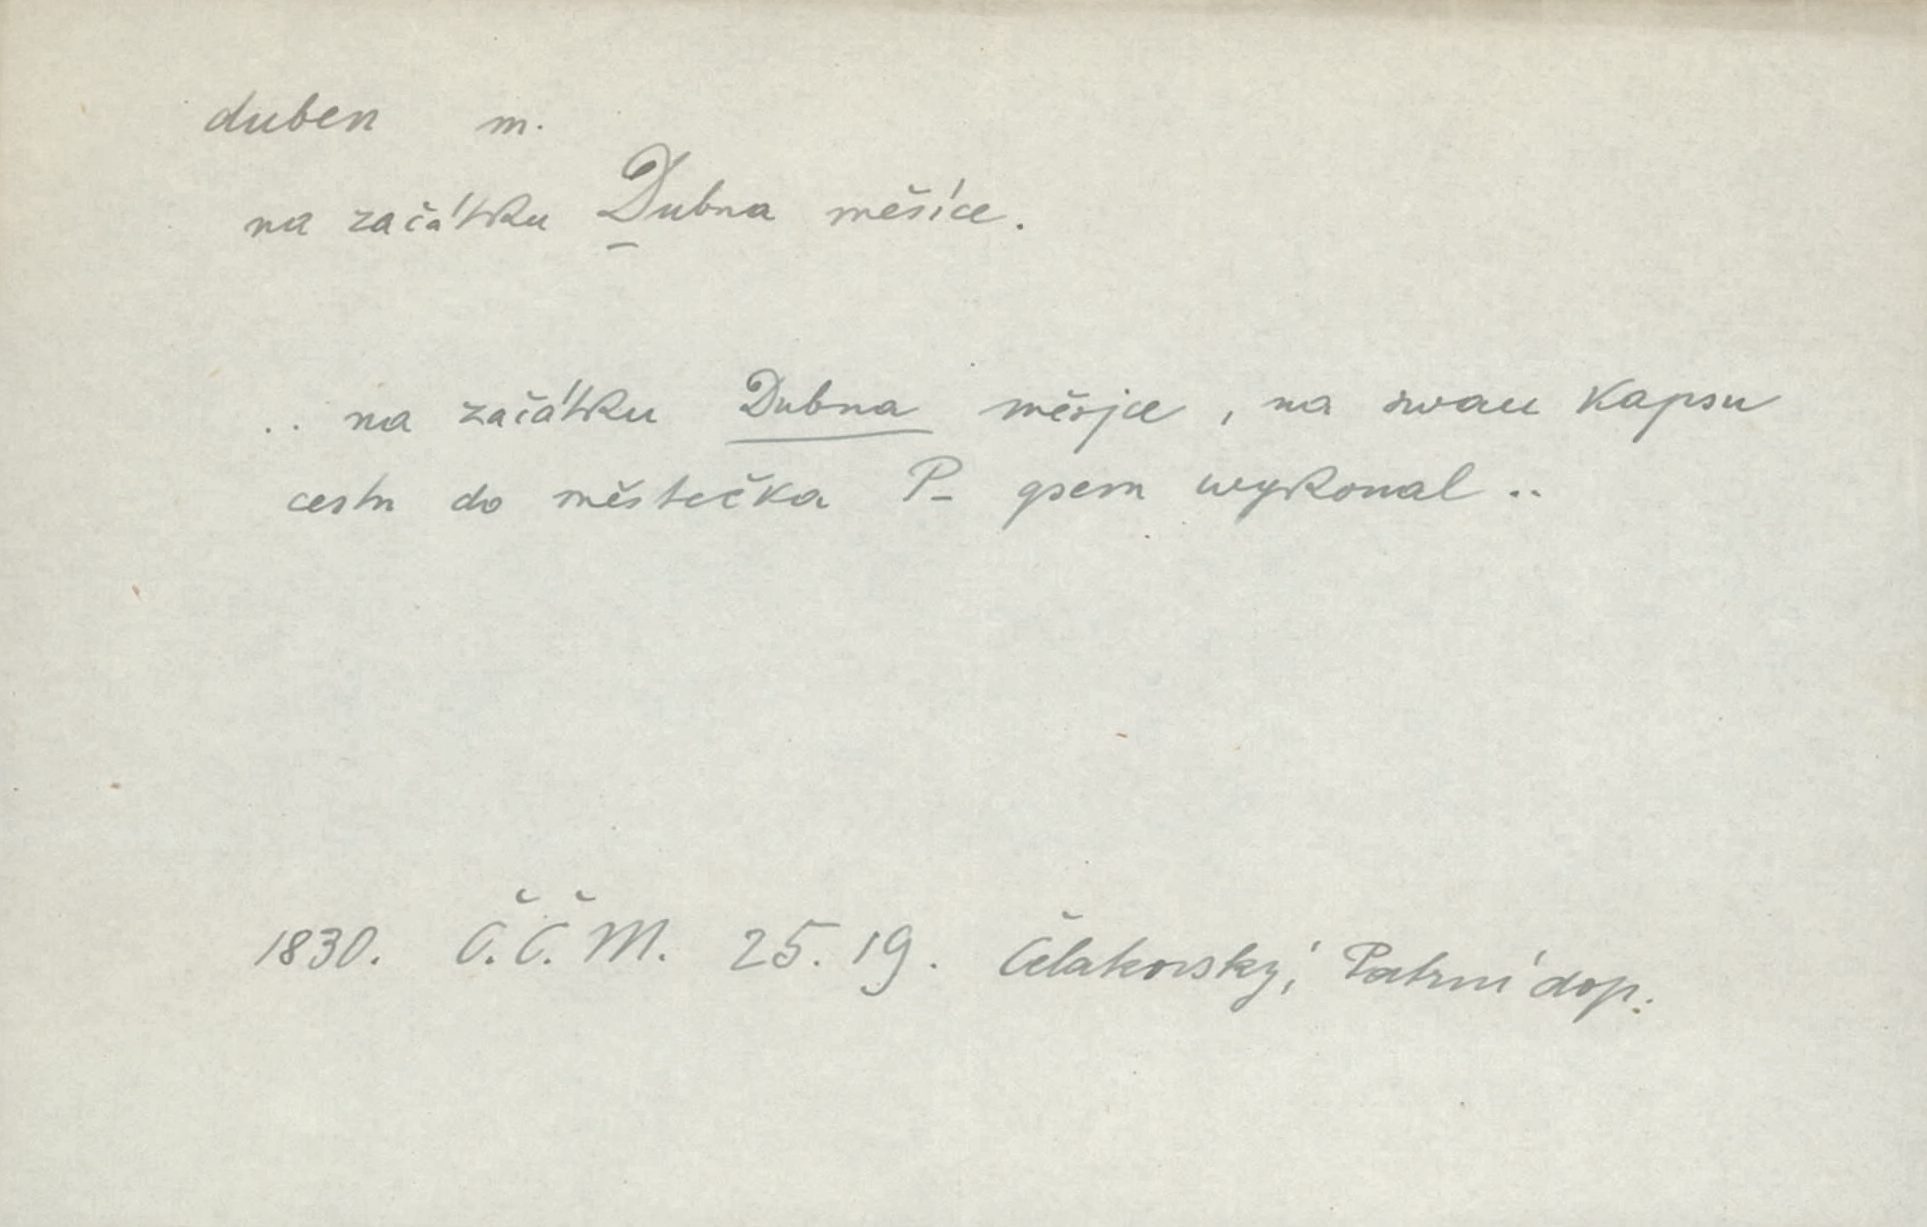 duben m.
na začátku Dubna měsíce.
.. na začátku Dubna měsjce, na swau kapsu
cestu do městečka P- gsem wykonal ..
1830. Č.Č.M. 25.19. Čelakovský, Patrní dop.